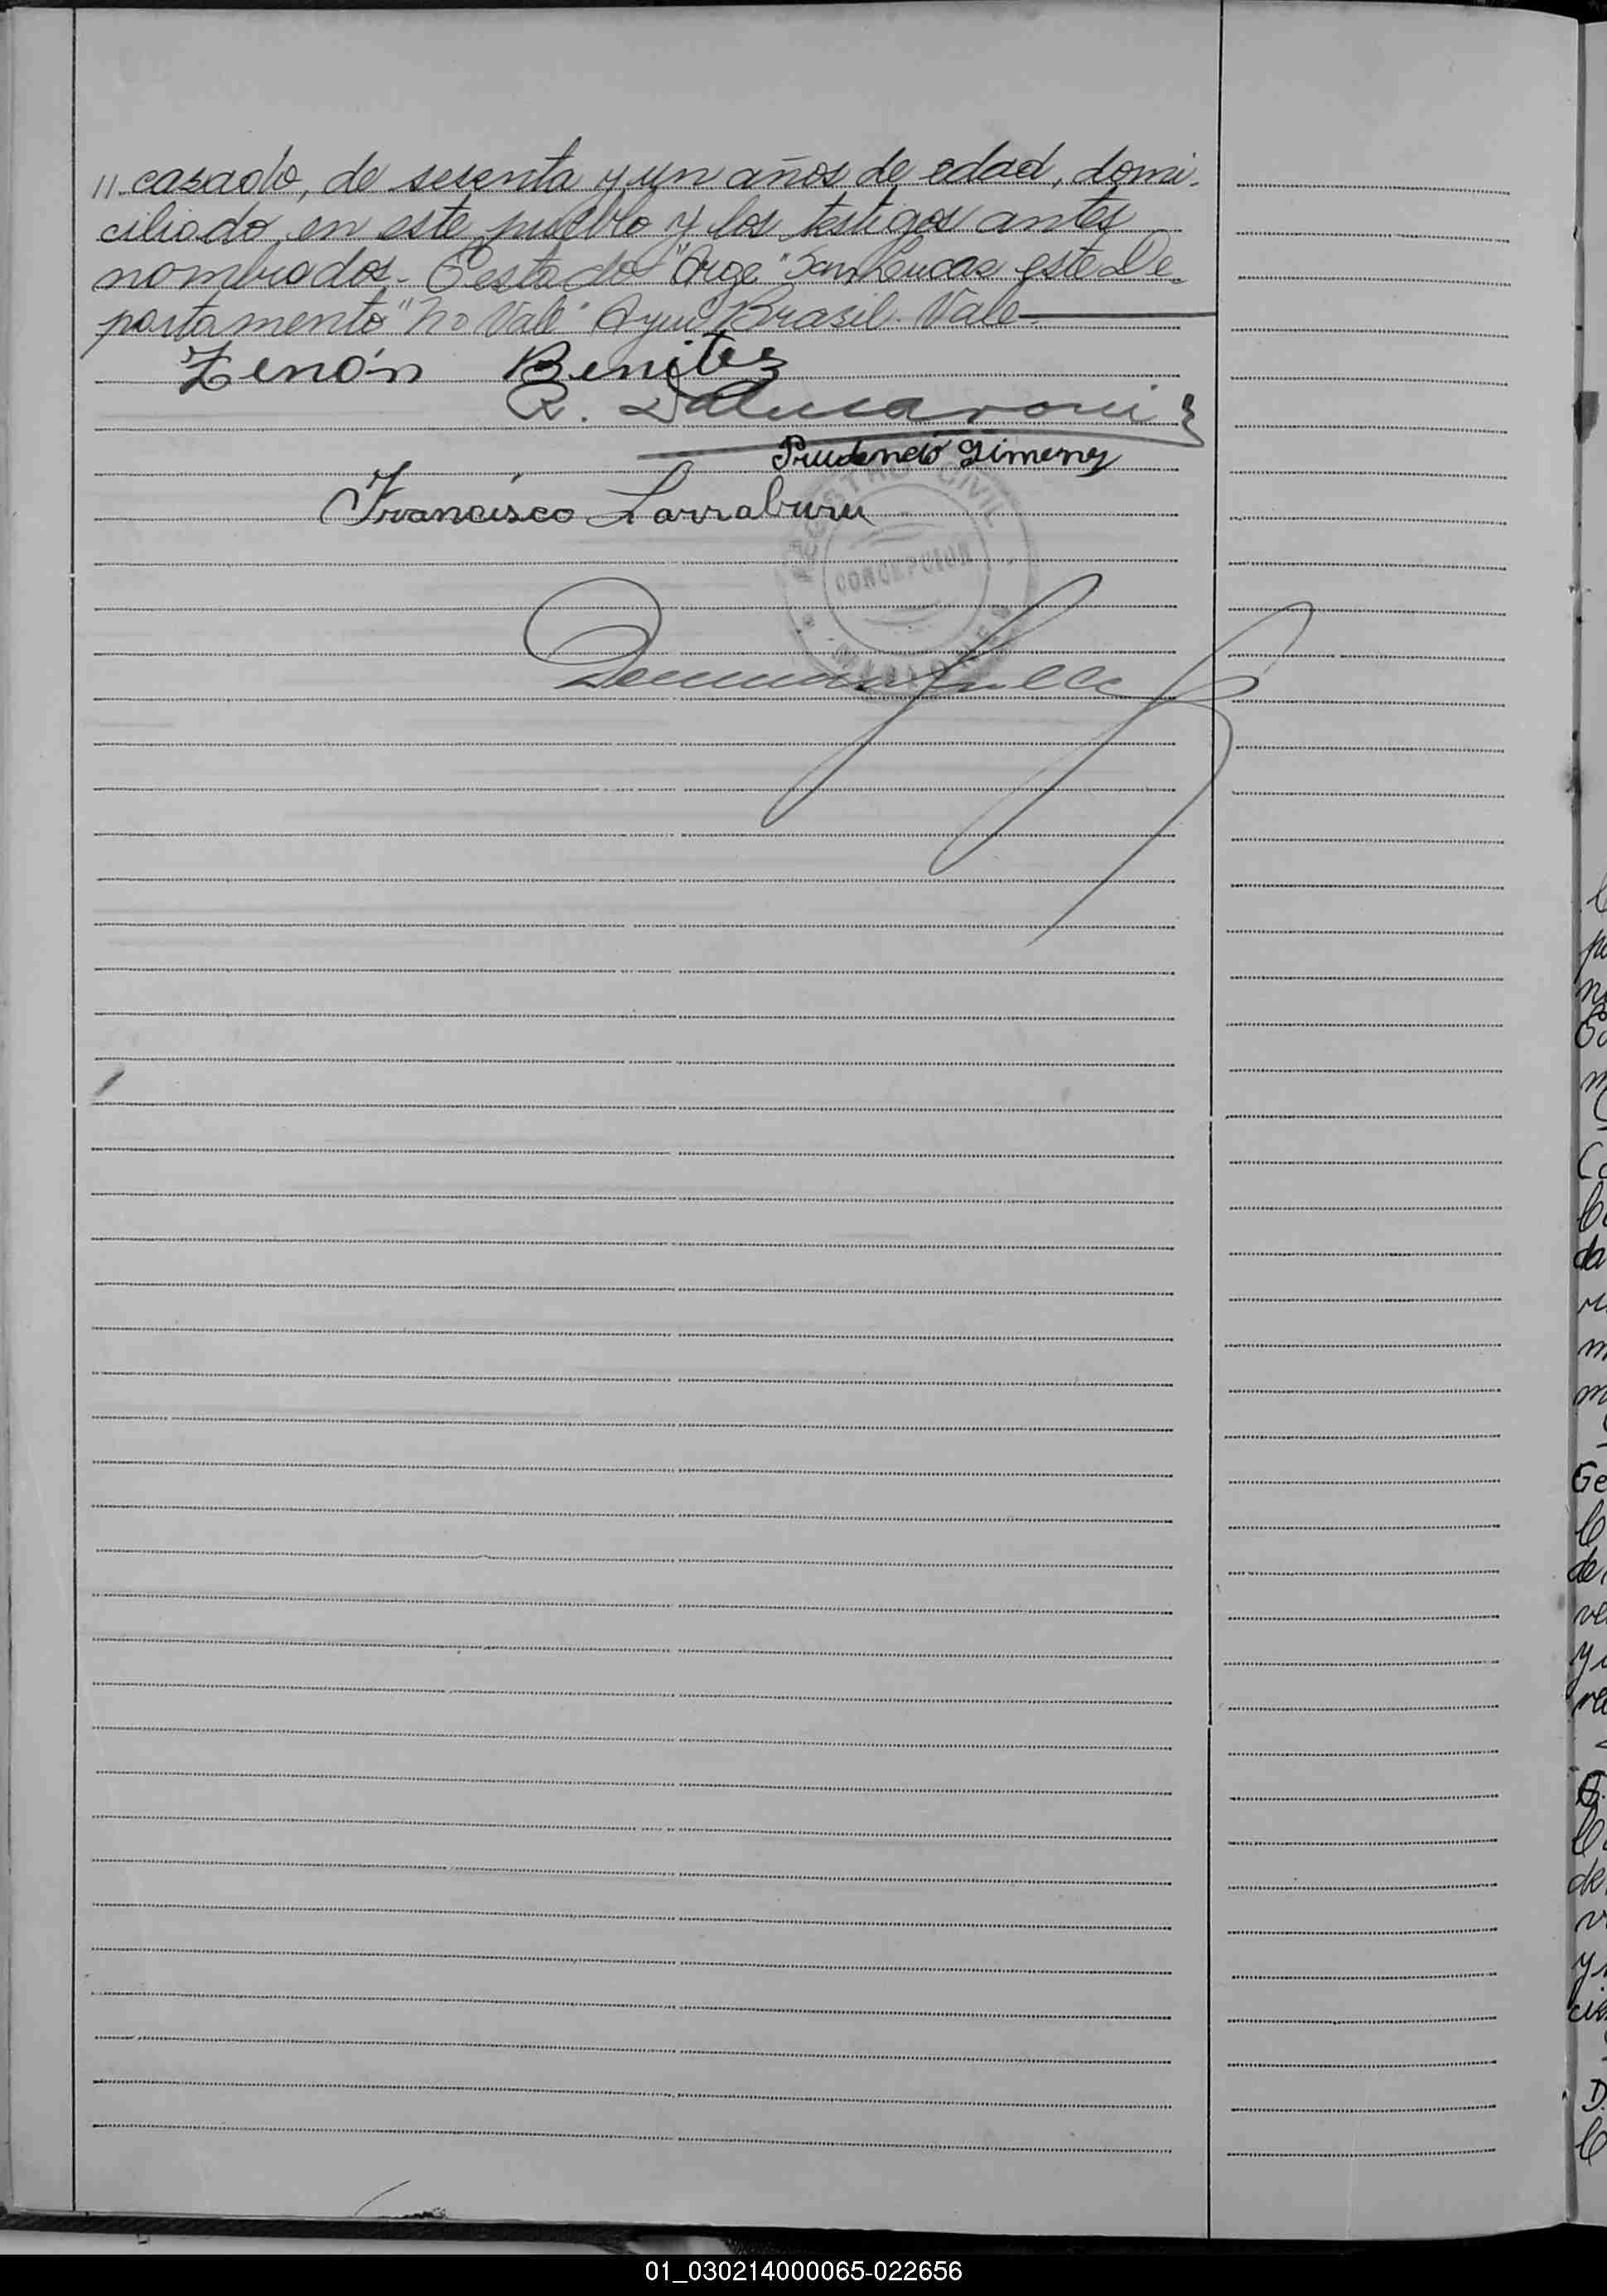 " casado, de sesenta y un años de edad, domi-
ciliado en este pueblo y los testigos antes
nombrados. Testado "Arge" San Lucas este De-
partamento "No Vale" Brasil. Vale
Zenón Benitez
R. Dalmaroni
Prudencio Gimenez
Francisco Larraburu
REGISTRO CIVIL
CONCEPCION
01_030214000065-022656